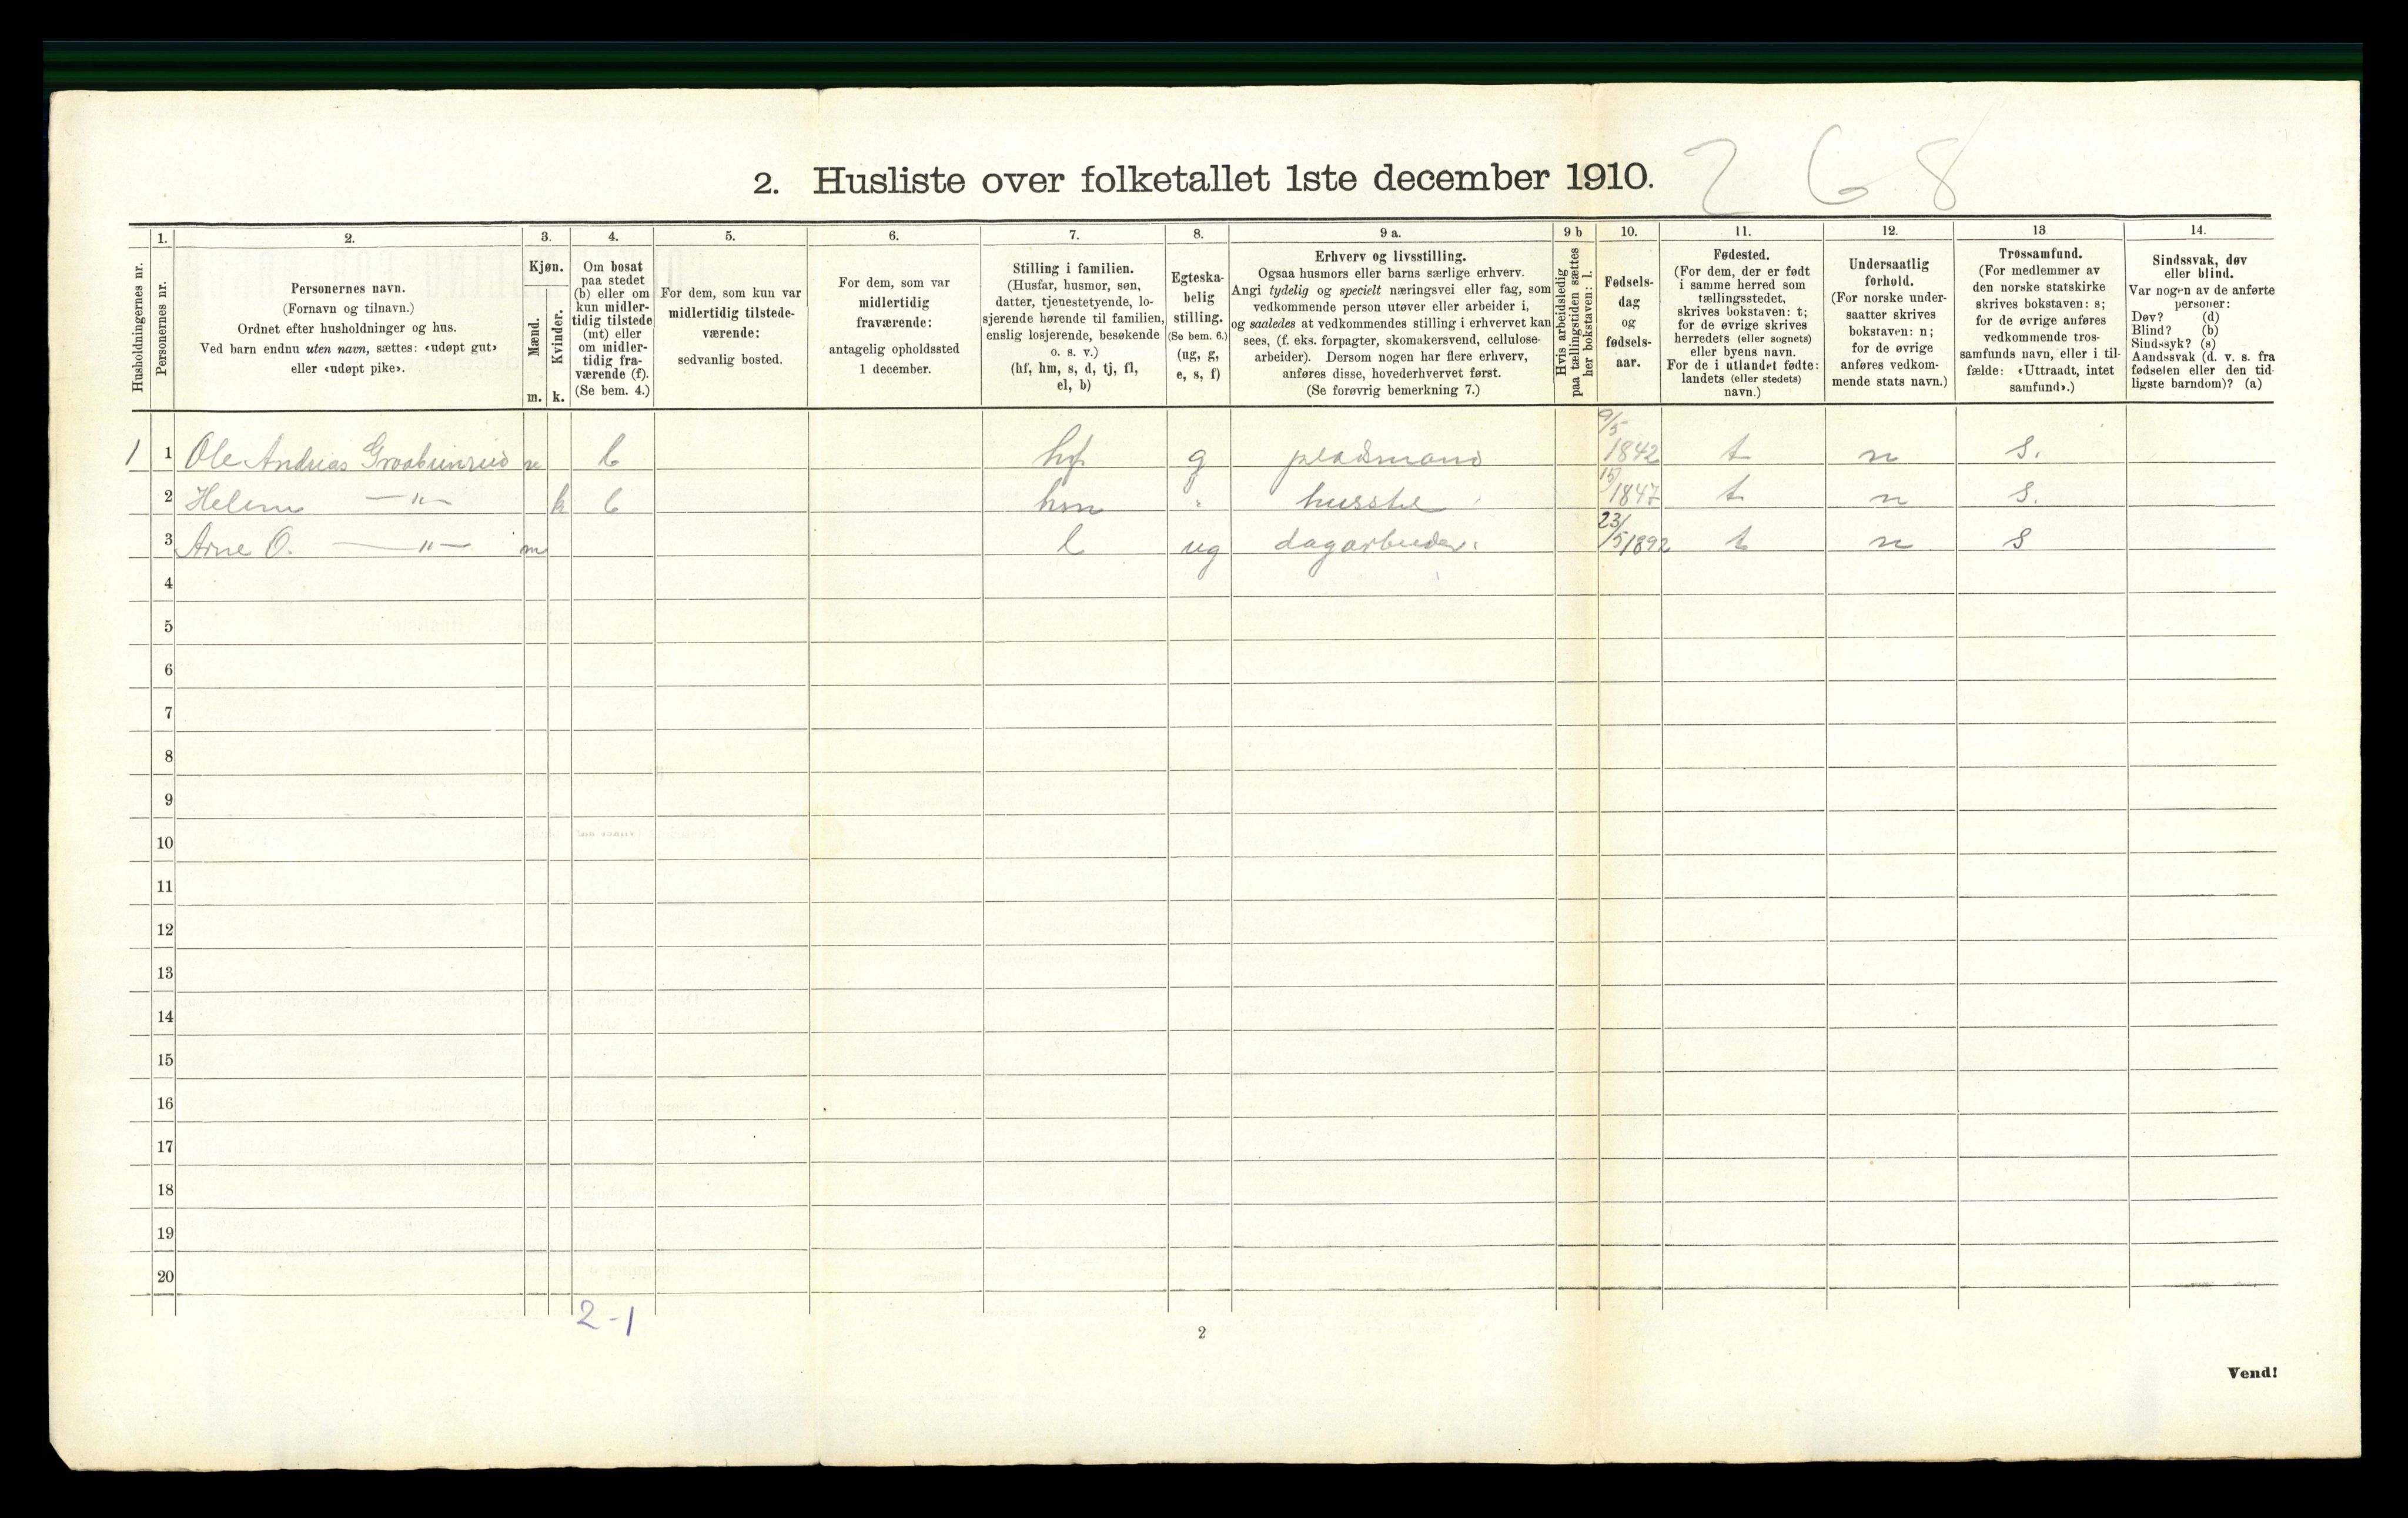 2. Husliste over folketallet 1ste december 1910. 268
Husholdningernes nr.
1. Personernes nr.
2. Personernes navn.
(Fornavn og tilnavn.)
Ordnet efter husholdninger og hus.
Ved barn endnu uten navn, sættes: «udøpt gut»
eller «udøpt pike».
3. Kjøn.
Mænd. m.
Kvinder. k.
4. Om bosat
paa stedet
(b) eller om
kun midler-
tidig tilstede
(mt) eller
om midler-
tidig fra-
værende (f).
(Se bem. 4.)
5. For dem, som kun var
midlertidig tilstede-
værende:
sedvanlig bosted.
6. For dem, som var
midlertidig
fraværende:
antagelig opholdssted
1 december.
7. Stilling i familien.
(Husfar, husmor, søn,
datter, tjenestetyende, lo-
sjerende hørende til familien,
enslig losjerende, besøkende
o. s. v.)
(hf, hm, s, d, tj, fl,
el, b)
8. Egteska-
belig
stilling.
(Se bem. 6.)
(ug, g,
e, s, f)
9 a. Erhverv og livsstilling.
Ogsaa husmors eller barns særlige erhverv.
Angi tydelig og specielt næringsvei eller fag, som
vedkommende person utøver eller arbeider i,
og saaledes at vedkommendes stilling i erhvervet kan
sees, (f. eks. forpagter, skomakersvend, cellulose-
arbeider). Dersom nogen har flere erhverv,
anføres disse, hovederhvervet først.
(Se forøvrig bemerkning 7.)
9 b Hvis arbeidsledig
paa tællingstiden sættes
her bokstaven: l.
10. Fødsels-
dag
og
fødsels-
aar.
11. Fødested.
(For dem, der er født
i samme herred som
tællingsstedet,
skrives bokstaven: t;
for de øvrige skrives
herredets (eller sognets)
eller byens navn.
For de i utlandet fødte:
landets (eller stedets)
navn.)
12. Undersaatlig
forhold.
(For norske under-
saatter skrives
bokstaven: n;
for de øvrige
anføres vedkom-
mende stats navn.)
13 Trossamfund.
(For medlemmer av
den norske statskirke
skrives bokstaven: s;
for de øvrige anføres
vedkommende tros-
samfunds navn, eller i til-
fælde: «Uttraadt, intet
samfund».)
14. Sindssvak, døv
eller blind.
Var nogen av de anførte
personer:
Døv? (d)
Blind? (b)
Sindssyk? (s)
Aandssvak (d. v. s. fra
fødselen eller den tid-
ligste barndom)? (a)
1 1 Ole Andreas m b hf g pladsmand 9/5 1842 t n s.
2 — " — k b hm " husstel 1847 t n s.
3 Arne O. — " — m l ug dagarbeider. 23/5 1892 t n s
4
5
6
7
8
9
10
11
12
13
14
15
16
17
18
19
20
2-1
2
Vend!